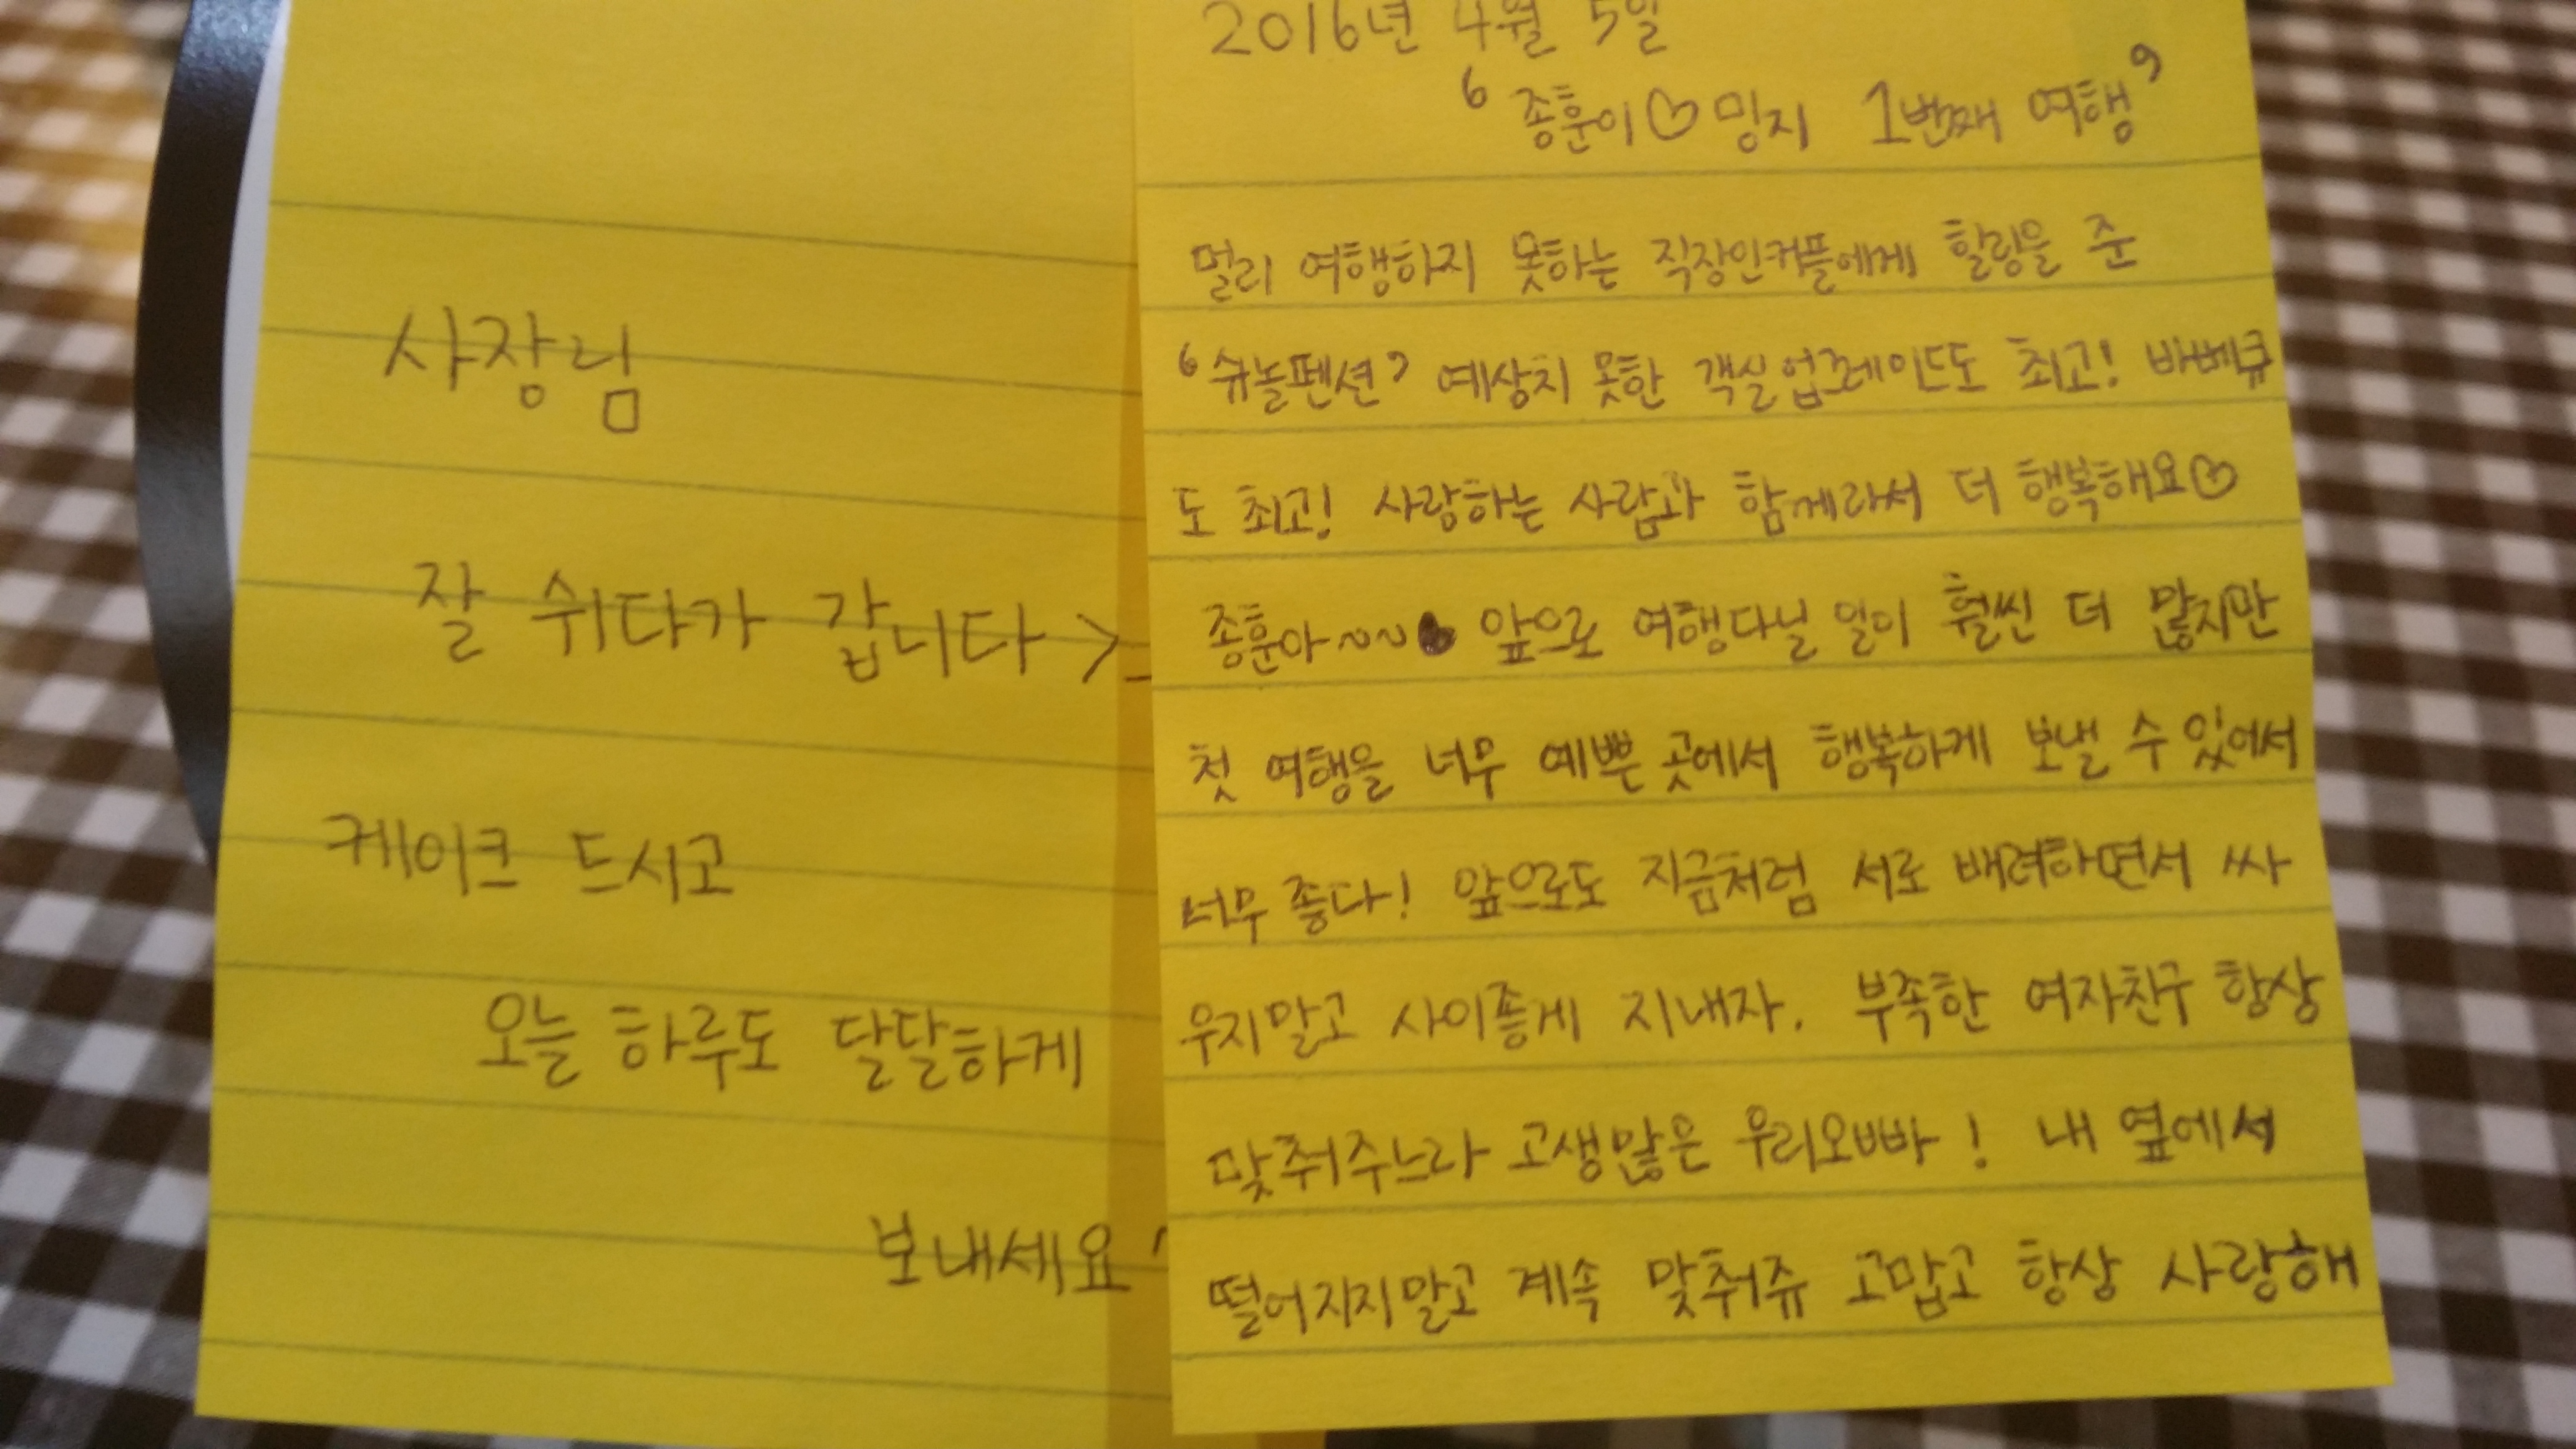 사장님
잘 쉬다가 갑니다 >_
케이크 드시고
오늘 하루도 달달하게
보내세요
2016년 4월 5일
‘종훈이♡밍지 1번째 여행’
멀리 여행하지 못하는 직장인커플에게 힐링을 준
‘슈놀펜션’ 예상치 못한 객실업그레이드도 최고! 바베큐
도 최고! 사랑하는 사람과 함께라서 더 행복해요♡
종훈아~~ 앞으로 여행다닐 일이 훨씬 더 많지만
첫 여행을 너무 예쁜 곳에서 행복하게 보낼 수 있어서
너무 좋다! 앞으로도 지금처럼 서로 배려하면서 싸
우지말고 사이좋게 지내자. 부족한 여자친구 항상
맞춰주느라 고생많은 우리오빠! 내 옆에서
떨어지지말고 계속 맞춰쥬 고맙고 항상 사랑해